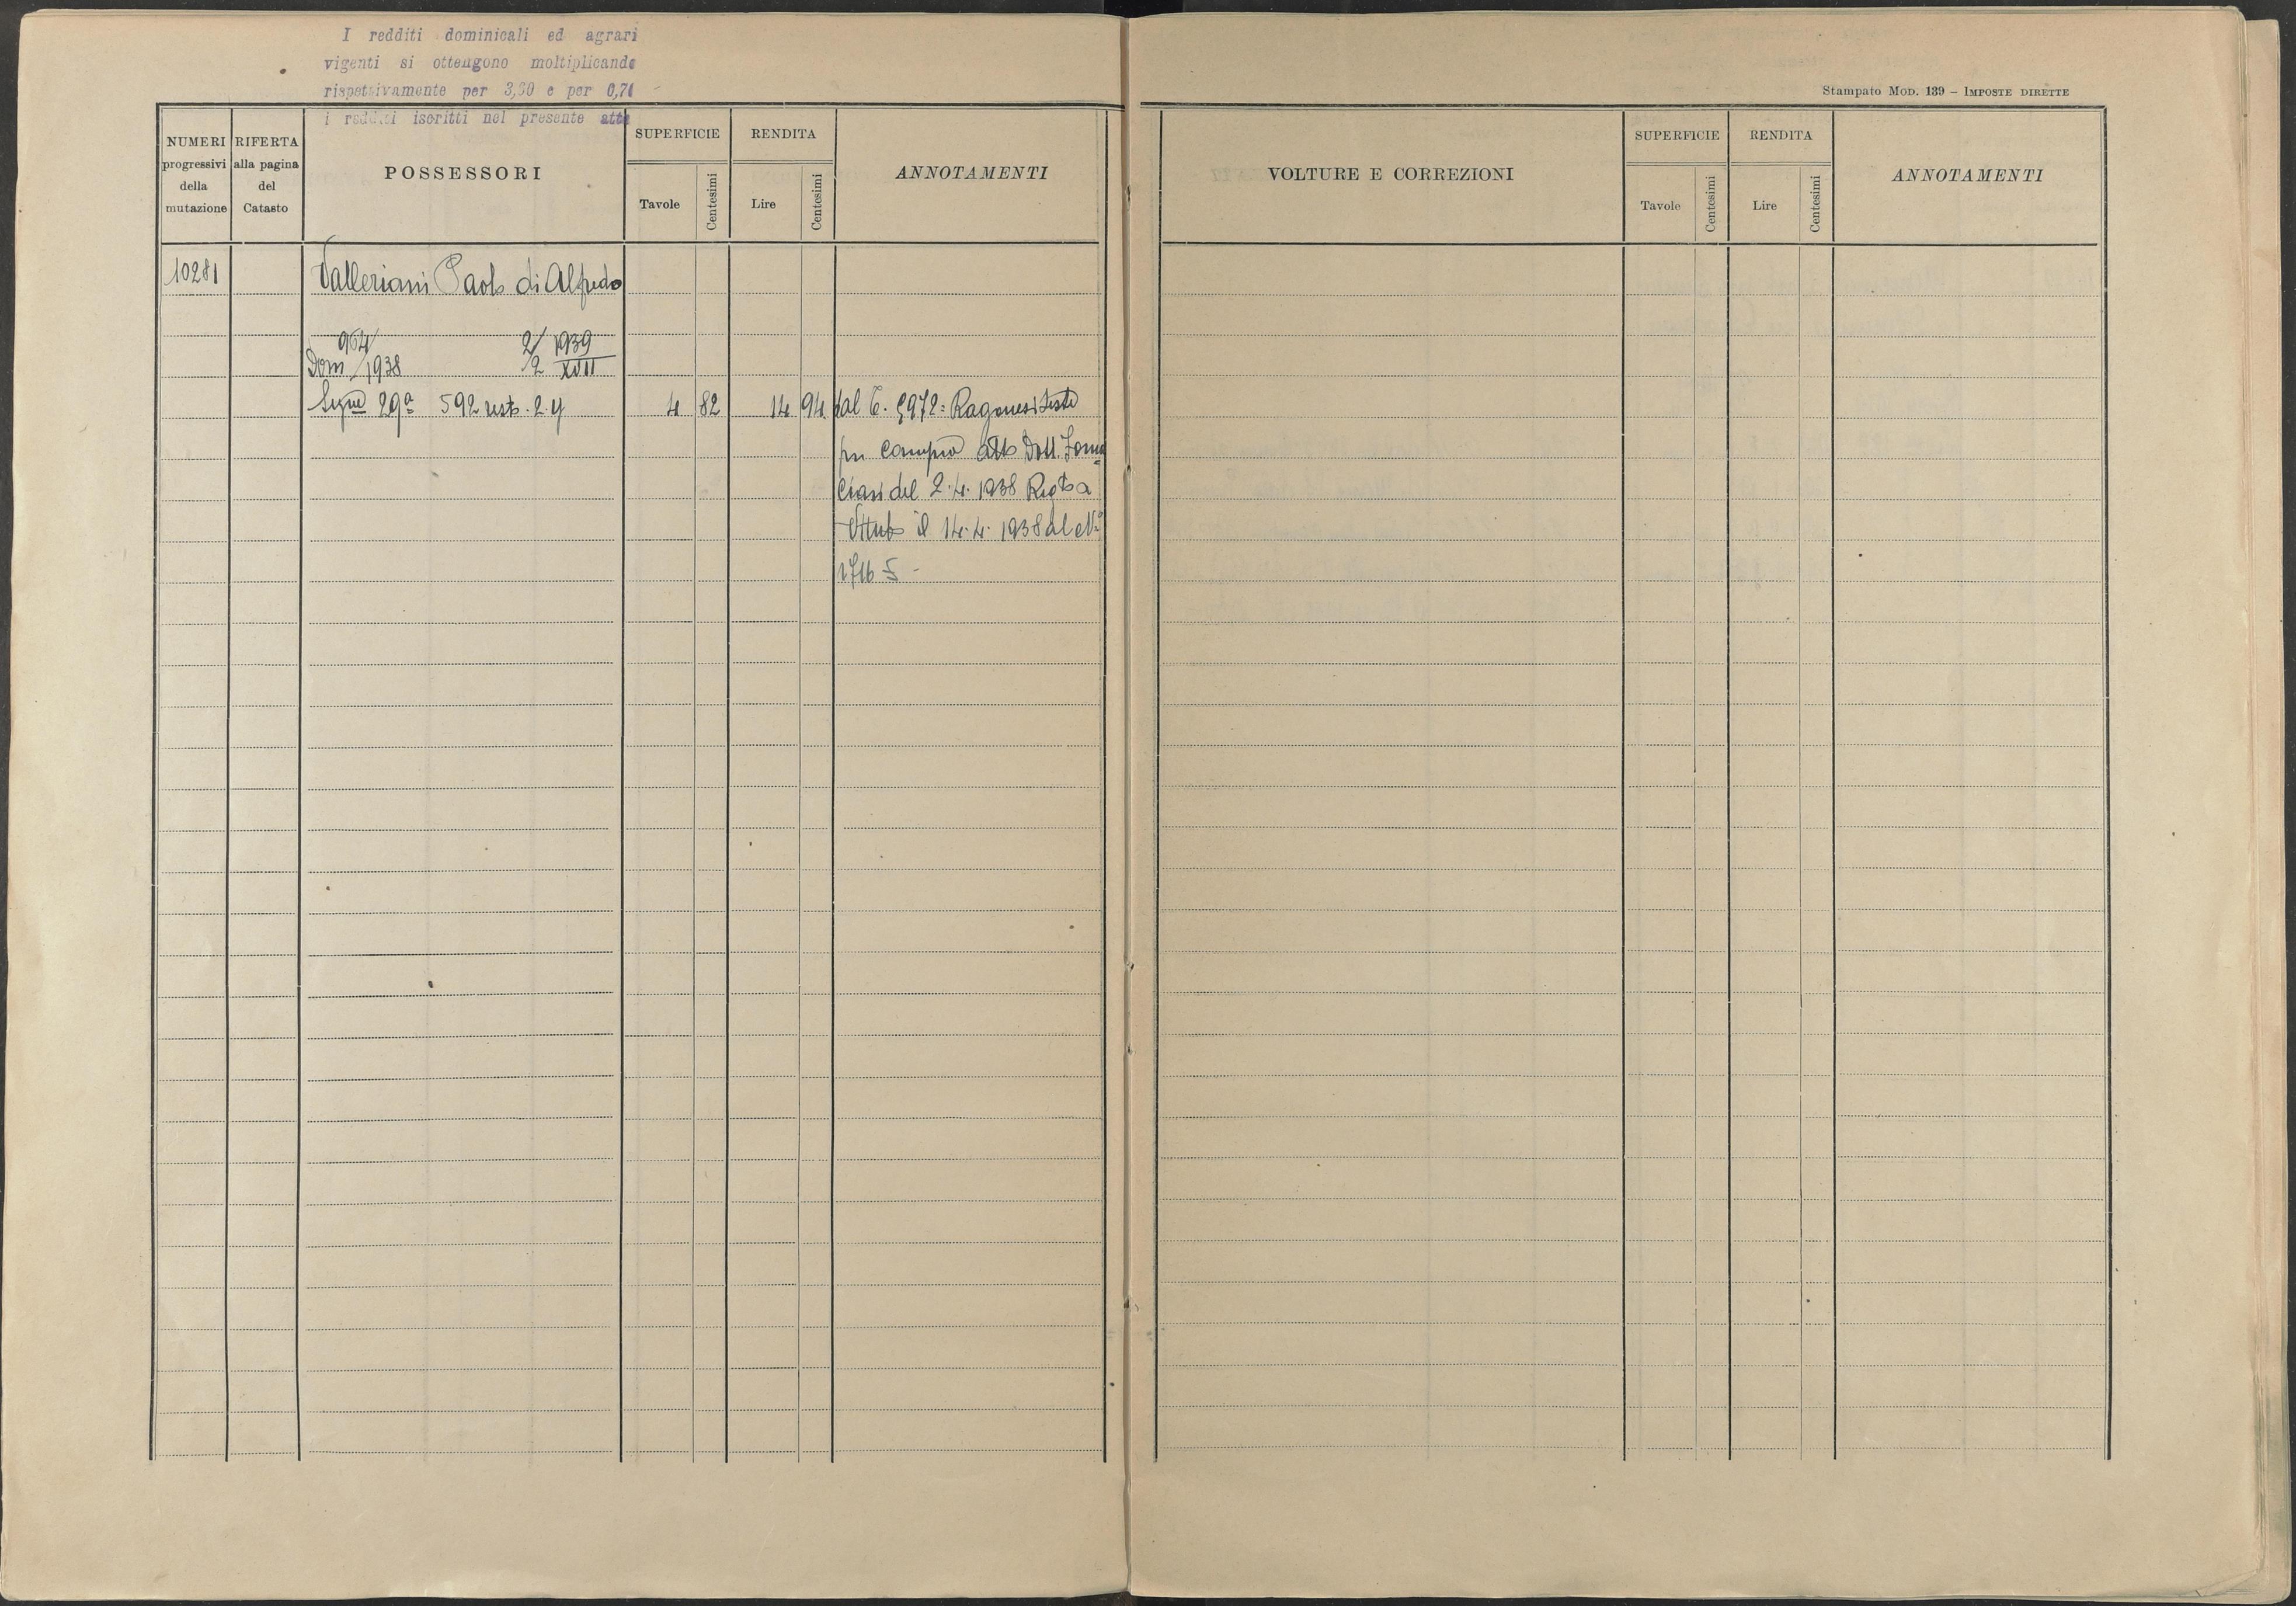 I redditi dominicali ed agrari
vigenti si ottengono moltiplicando
rispettivamente per 3,30 e per 0,71
i redditi iscritti nel presente atto
Stampato Mod. 139 – Imposte dirette
NUMERI progressivi della mutazione
RIFERTA alla pagina del Catasto
POSSESSORI
SUPERFICIE
Tavole
Centesimi
RENDITA
Lire
Centesimi
ANNOTAMENTI
VOLTURE E CORREZIONI
SUPERFICIE
Tavole
Centesimi
RENDITA
Lire
Centesimi
ANNOTAMENTI
10281 Valleriani Paolo di Alfredo
964 2/ 1939
Dom /1938 /2 XVII
29ª 592 2.4 4 82 14 94 dal C. 5972: Ragonesi
per compra atto Dott.
del 2.4.1938 Regto a
il 14.4.1938 al N°
1716